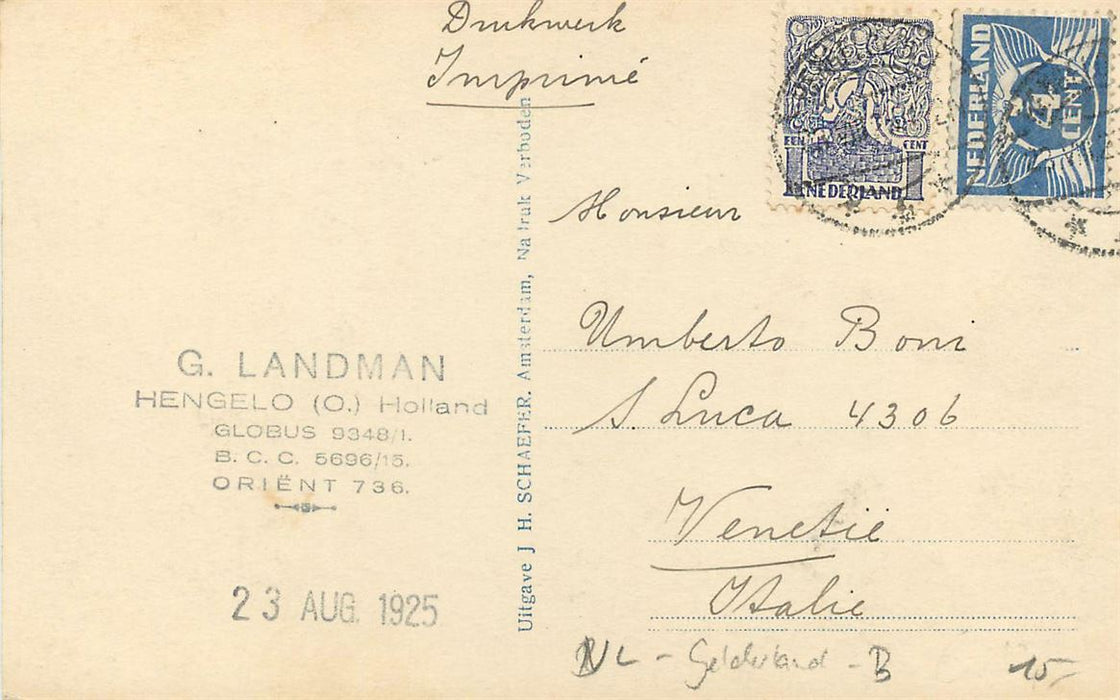 Drukwerk
Imprimé
EEN CENT
1
NEDERLAND
NEDERLAND
4
CENT
Monsieur
Umberto Boni
S. Luca 4306
Venetië
Italie
G. LANDMAN
HENGELO (O.) Holland
GLOBUS 9348/1.
B. C. C. 5696/15.
ORIËNT 736.
23 AUG. 1925
Uitgave J. H. SCHAEFER. Amsterdam, Nadruk Verboden
NL - Gelderland - B 15-